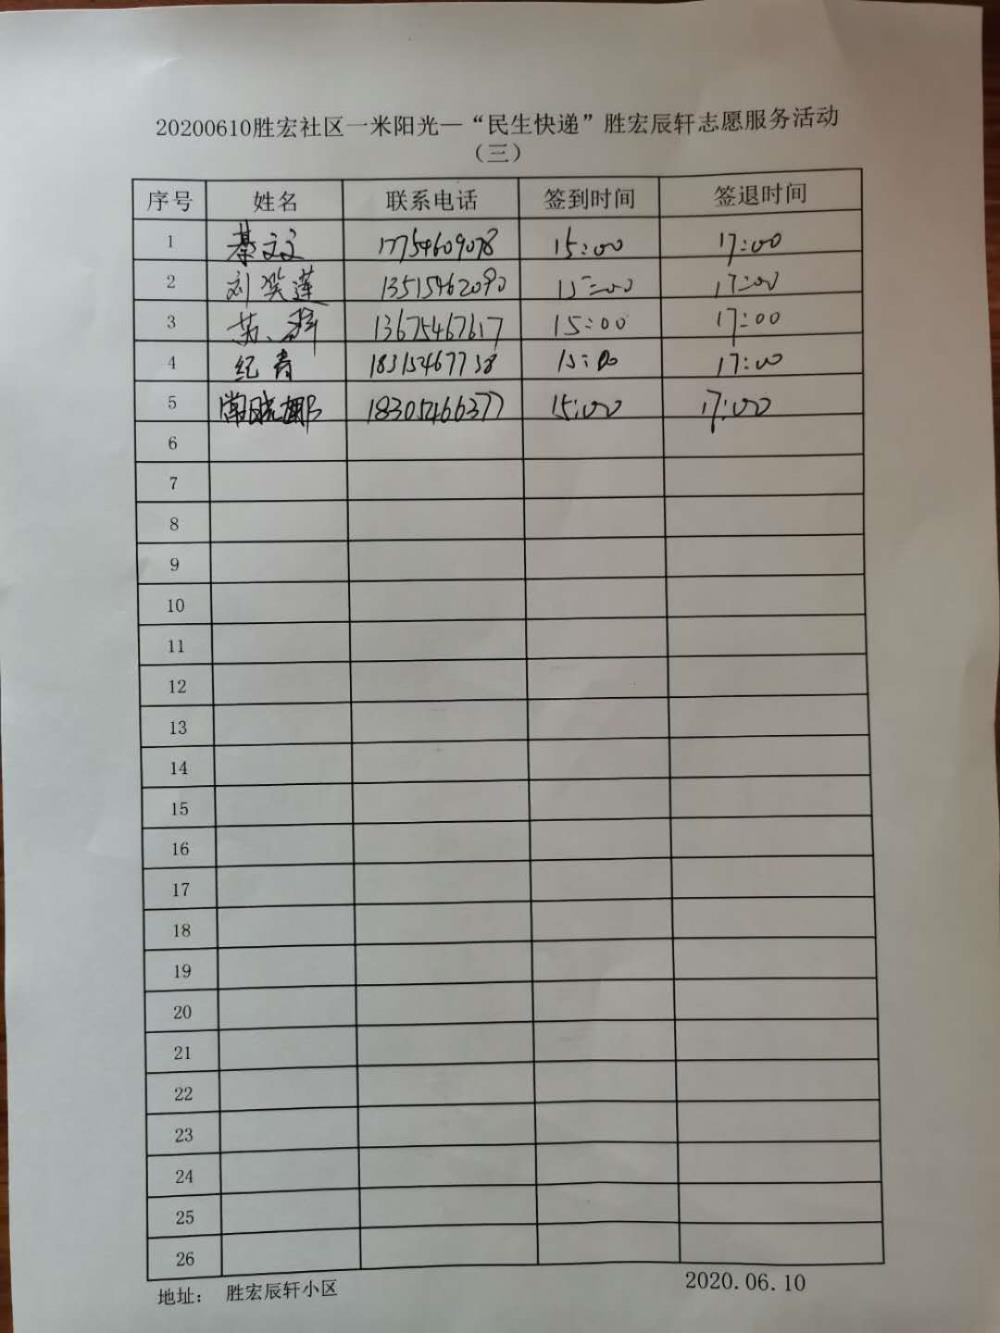 20200610胜宏社区一米阳光—“民生快递”胜宏辰轩志愿服务活动
（三）
序号 姓名 联系电话 签到时间 签退时间
1 綦文文 17754609078 15:00 17:00
2 刘 莲 13515462090 15:00 17:00
3 13675467617 15:00 17:00
4 纪青 18315467738 15:00 17:00
5 常晓娜 18305466377 15:00 17:00
6
7
8
9
10
11
12
13
14
15
16
17
18
19
20
21
22
23
24
25
26
地址： 胜宏辰轩小区 2020.06.10